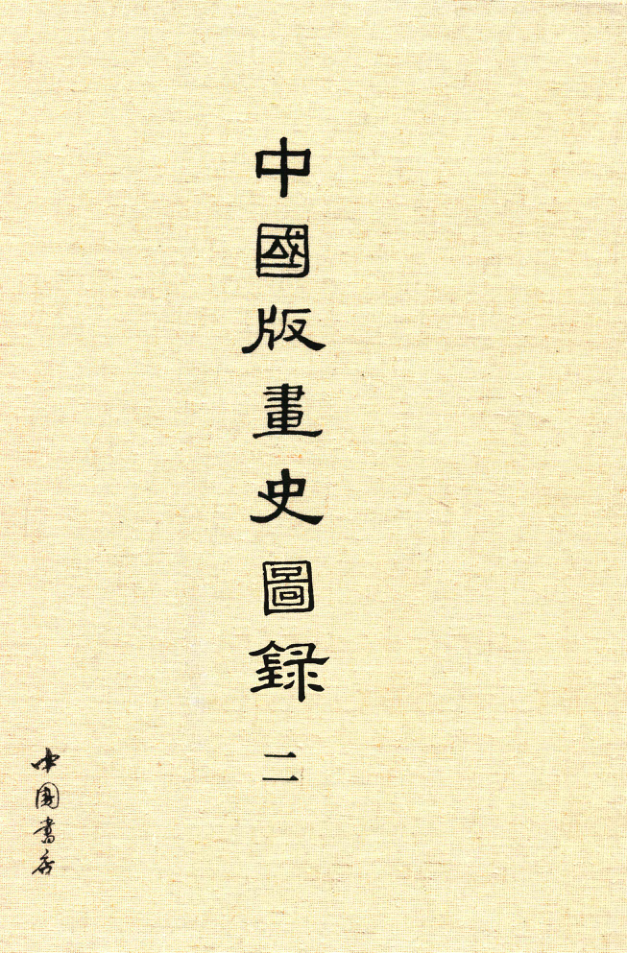 中國版畫史圖録 二
中国書店